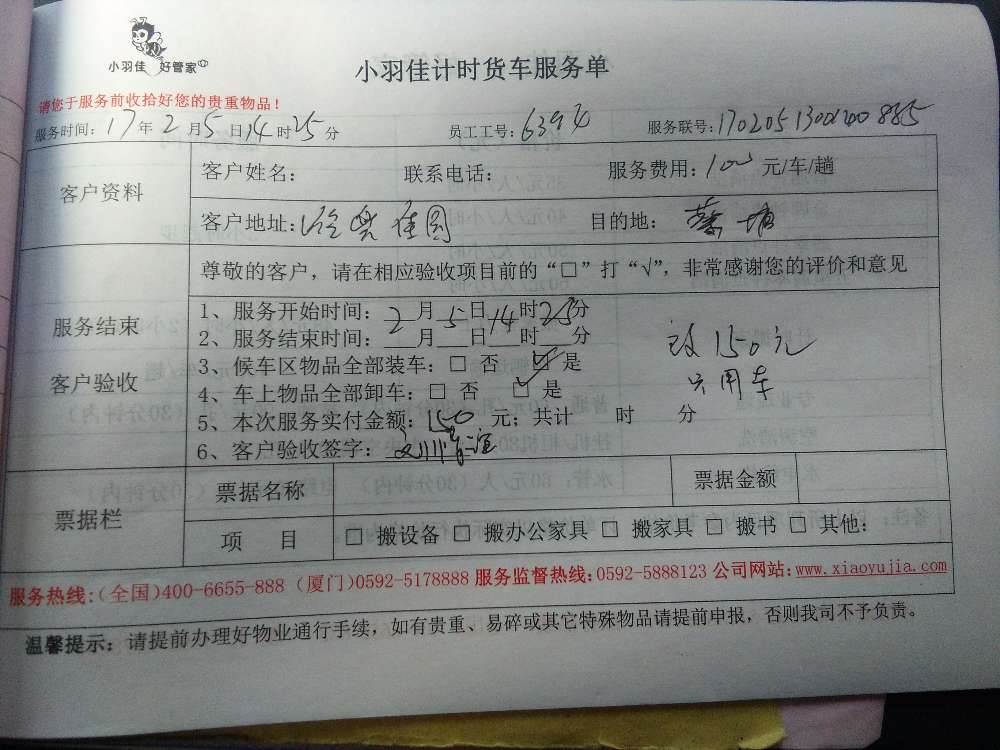 小羽佳 好管家
小羽佳计时货车服务单
请您于服务前收拾好您的贵重物品！
服务时间：17年2月5日14时25分 员工工号：6394 服务联号：1702051300100885
客户资料
客户姓名： 联系电话： 服务费用：100 元/车/趟
客户地址： 佳园 目的地：
尊敬的客户，请在相应验收项目前的“□”打“√”，非常感谢您的评价和意见
服务结束
客户验收
1、服务开始时间：2月5日14时25分
2、服务结束时间：__月__日__时__分
3、候车区物品全部装车：□ 否 ☑ 是
4、车上物品全部卸车：□ 否 ☑ 是
5、本次服务实付金额：150 元；共计 时 分
6、客户验收签字：
150元
只用车
票据栏
票据名称 票据金额
项 目 □ 搬设备 □ 搬办公家具 □ 搬家具 □ 搬书 □ 其他：
服务热线：(全国)400-6655-888 (厦门)0592-5178888 服务监督热线：0592-5888123 公司网站：www.xiaoyujia.com
温馨提示：请提前办理好物业通行手续，如有贵重、易碎或其它特殊物品请提前申报，否则我司不予负责。